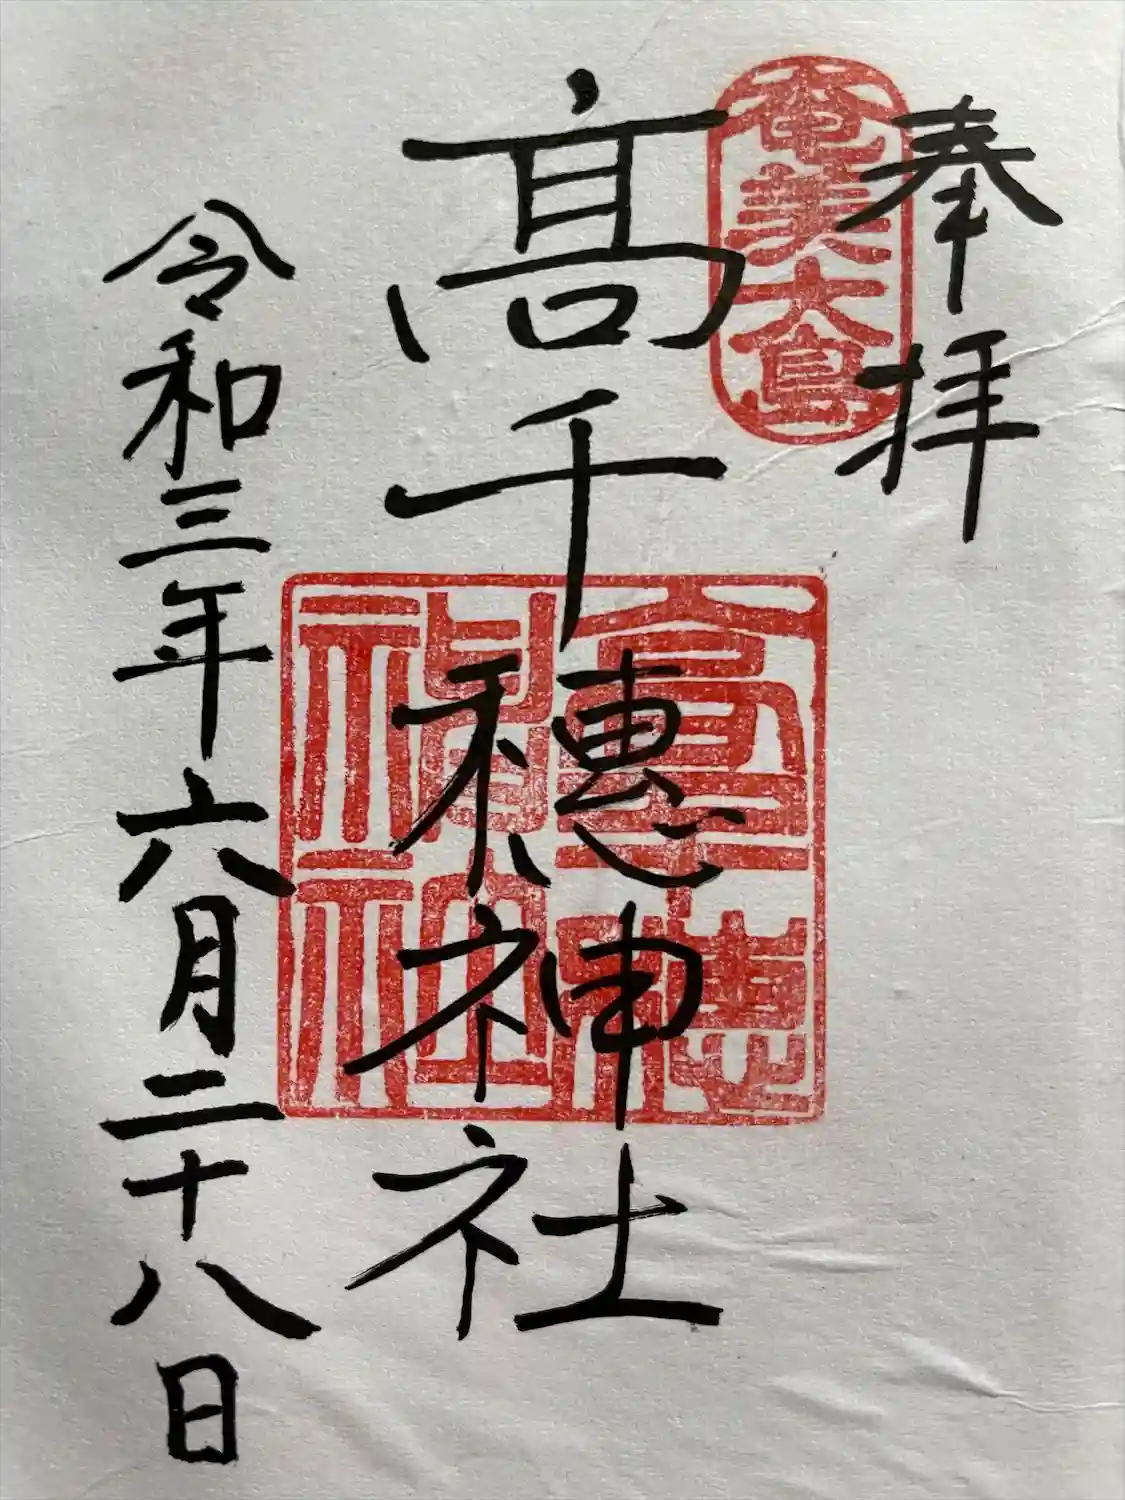 奉拝
奄美大島
髙千穂神社
高千穂神社
令和三年六月二十八日